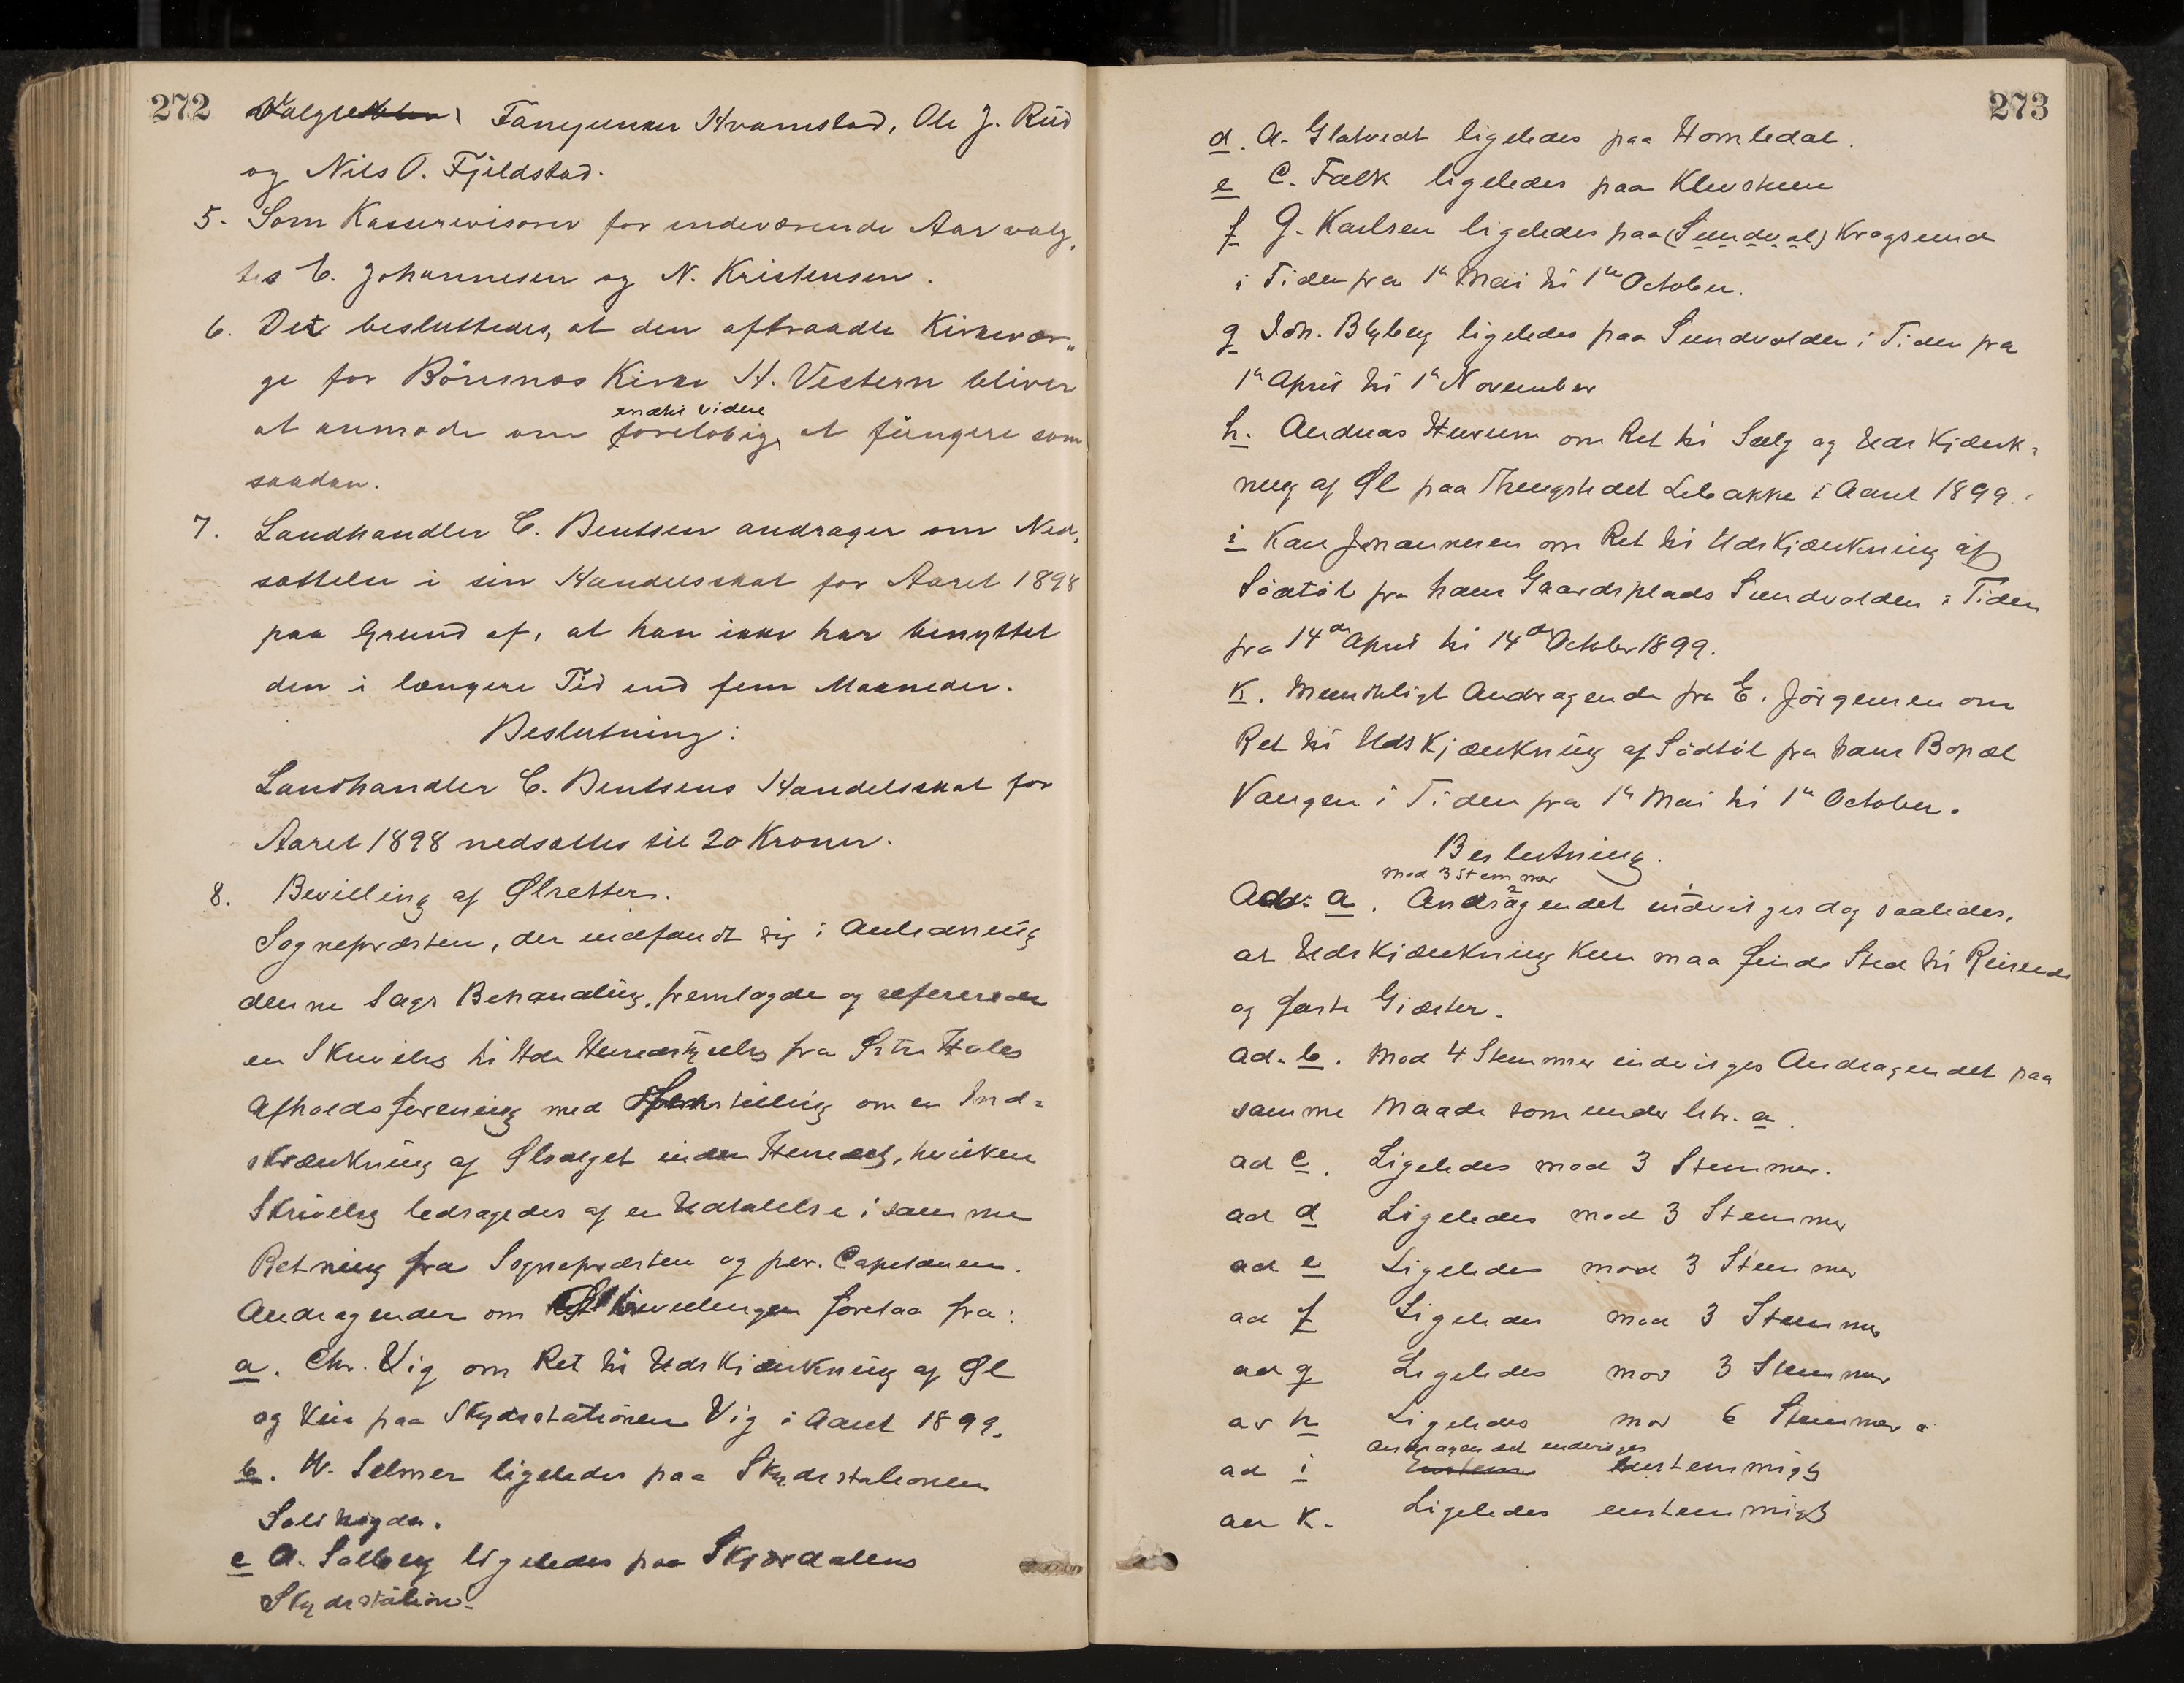 272
Fangeunker Hvamstad, Ole J. Rud
og Nils O. Fjeldstad.
5. Som Kasserevisorer for indeværende Aar valg,
tes C. Johannesen og N. Kristensen.
6. Det besluttedes, at den aftraadte Kirkevær„
ge for Bönsnæs Kirke H. Vestern bliver
endtil videre
at anmode om foreløbig, at fungere som
saadan.
7. Landhandler C. Bentsen andrager om Ned,
sættelse i sin Handelsskat for Aaret 1898
paa Grund af, at han ikke har benyttet
den i længere Tid end fem Maaneder.
Beslutning:
Landhandler C. Bentsens Handelsskat for
Aaret 1898 nedsættes til 20 Kroner.
8. Bevilling af Ølretter.
Sognepræsten, der indfandt sig i Anledning
denne Sags Behandling, fremlagde og refererede
en Skrivelse til Hole Herredsstyrelse fra Hole
Afholdsforening med om en Ind=
skrænkning af Ølsalget inden Herredet, hvilken
Skrivelse ledsagedes af en Udtalelse i samme
Retning fra Sognepræsten og per. Capelanen.
Andragender om forelaa fra:
a. Chr. Vig om Ret til Udskjænkning af Øl
og Vin paa Skydsstationen Vig i Aaret 1899.
b. W. Selmer ligeledes paa Skydsstationen
Solihøgda.
c A. Solberg ligeledes paa Skjærdalens
Skydsstation.
273
d. A. Glatvedt ligeledes paa Homledal.
e C. Falk ligeledes paa Klevstuen
f G. Karlsen ligeledes paa (Sundvol) Krogsund
i Tiden fra 1ste Mai til 1ste October.
g Joh. Blyberg ligeledes paa Sundvolden i Tiden fra
1ste April til 1ste November
h. Andreas Hurum om Ret til Salg og Udskjænk=
ning af Øl paa Thingstedet Lebakke i Aaret 1899.
i Karl Johannesen om Ret til Udskjænkning af
Sødtöl fra hans Gaardsplads Sundvolden i Tiden
fra 14de April til 14de October 1899.
k. Mundtligt Andragende fra E. Jörgensen om
Ret til Udskjænkning af Södtöl fra hans Bopæl
Vangen i Tiden fra 1ste Mai til 1ste October.
Beslutning.
mod 3 Stemmer
Ad: a. Andragendet indvilges dog saaledes,
at Udskjænkning kun maa finde Sted til Reisende
og faste Gjæster.
ad. b. Mod 4 Stemmer indvilges Andragendet paa
samme Maade som under litr. a.
ad c. Ligeledes mod 3 Stemmer.
ad d Ligeledes mod 3 Stemmer
ad e Ligeledes mod 3 Stemmer
ad f Ligeledes mod 3 Stemmer
ad g Ligeledes mod 3 Stemmer
ad h Ligeledes mod 6 Stemmer
Andragendet indvilges
ad i enstemmigt
ad k. Ligeledes enstemmigt